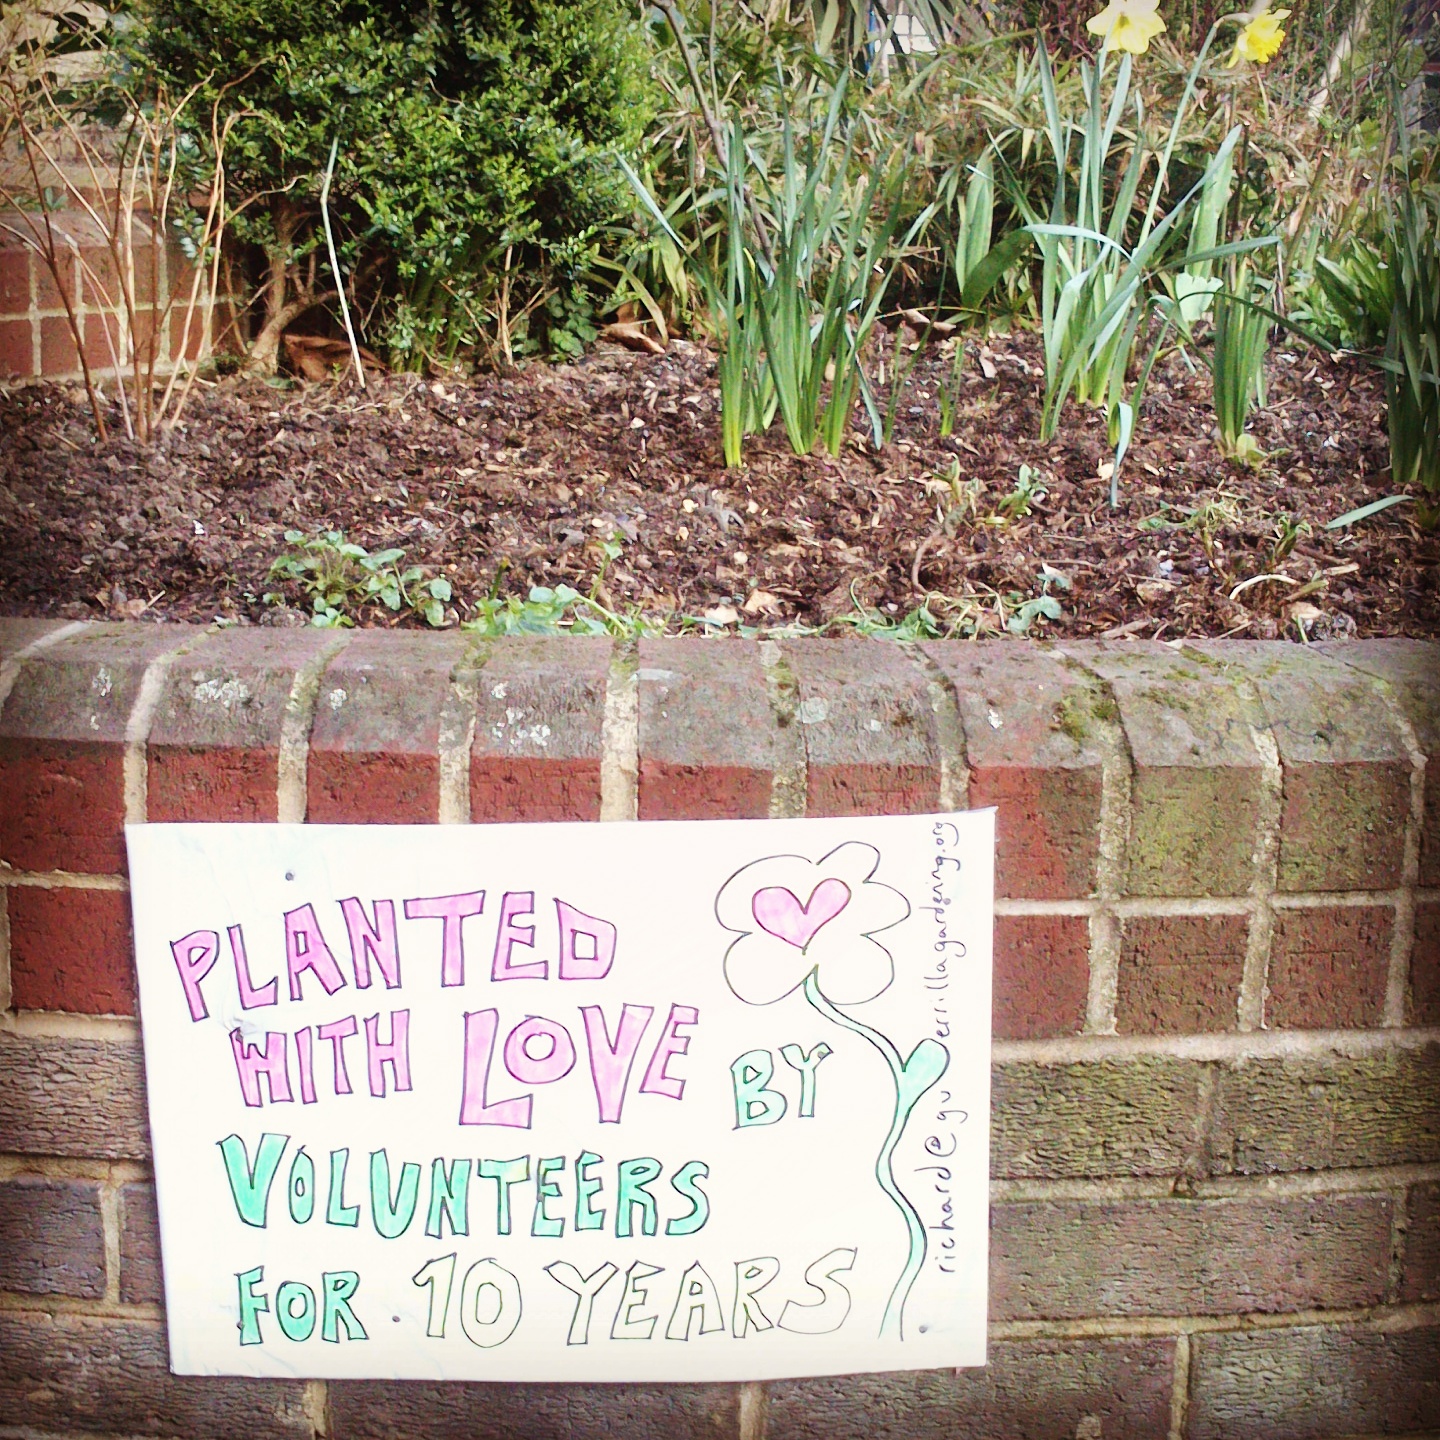 PLANTED
WITH LOVE BY
VOLUNTEERS
FOR 10 YEARS
richard@guerrillagardening.org